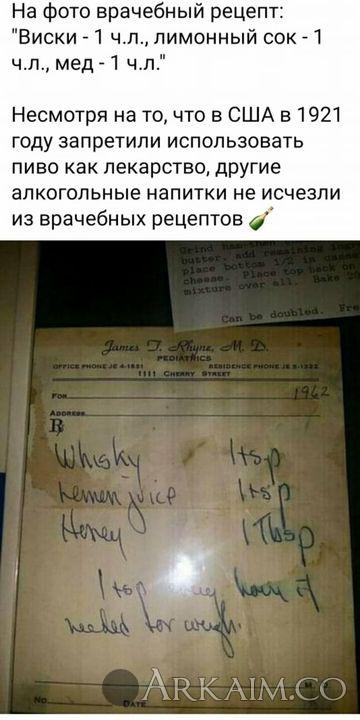 На фото врачебный рецепт:
"Виски - 1 ч.л., лимонный сок - 1
ч.л., мед - 1 ч.л."
Несмотря на то, что в США в 1921
году запретили использовать
пиво как лекарство, другие
алкогольные напитки не исчезли
из врачебных рецептов
Grind ham then
butter, add remaining
place bottom 1/2 in
cheese. Place top back on
mixture over all. Bake
Can be doubled. Fre
James T. Rhyne, M. D.
PEDIATRICS
OFFICE PHONE JE 4-1851 RESIDENCE PHONE JE 5-1322
1111 CHERRY STREET
FOR 1962
ADDRESS
℞
Whisky 1 tsp
Lemon juice 1 tsp
Honey 1 Tbsp
1 tsp every hour if
needed for cough.
NO. DATE
ARKAIM.CO